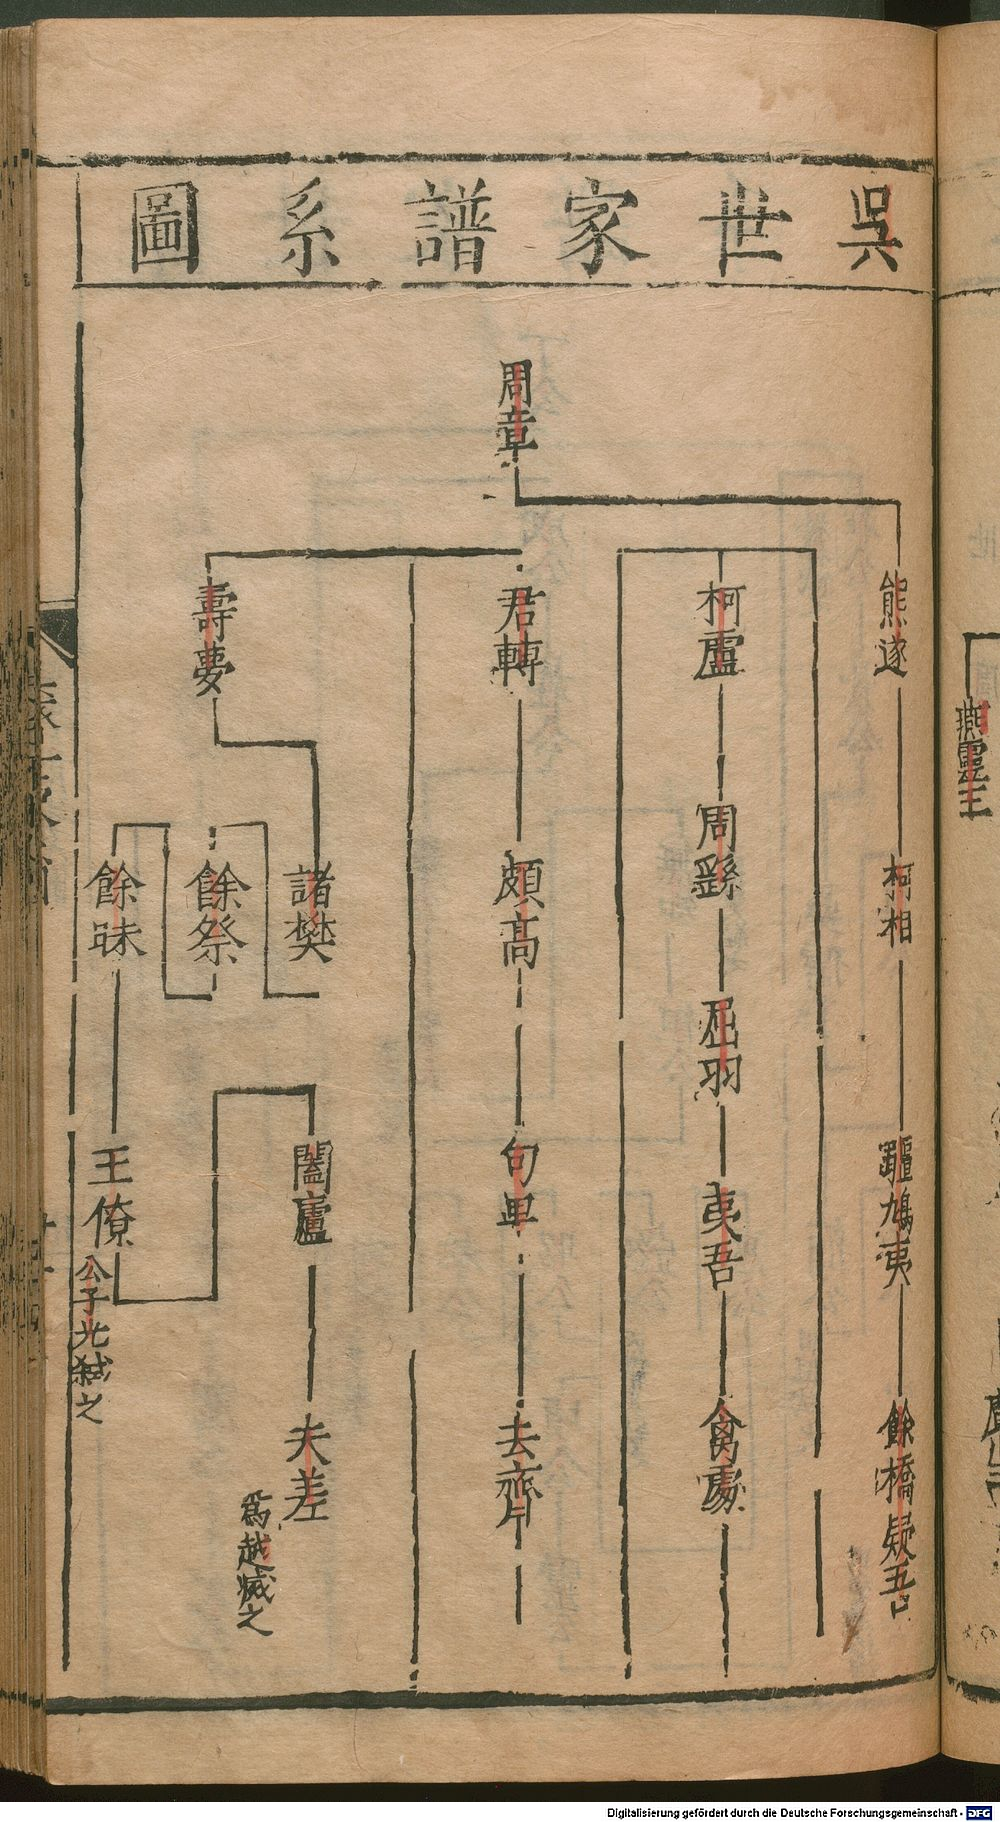 吳世家譜系圖
周章
熊遂
柯相
彊鳩夷
餘橋疑吾
柯盧
周繇
屈羽
夷吾
禽處
君轉
頗高
句卑
去齊
壽夢
諸樊
餘祭
餘昧
王僚
公子光弒之
闔廬
夫差
爲越滅之
燕靈王
Digitalisierung gefördert durch die Deutsche Forschungsgemeinschaft - DFG